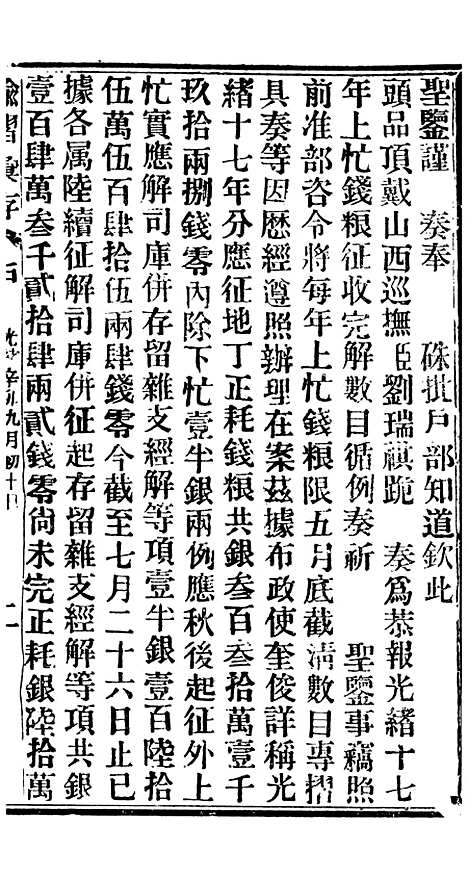 聖鑒謹　奏奉　硃批戶部知道欽此
頭品頂戴山西巡撫臣劉瑞祺跪　奏爲恭報光緒十七
年上忙錢粮征收完解數目循例奏祈　聖鑒事竊照
前准部咨令將每年上忙錢粮限五月底截清數目專摺
具奏等因歷經遵照辦理在案茲據布政使奎俊詳稱光
緒十七年分應征地丁正耗錢粮共銀叁百叁拾萬壹千
玖拾兩捌錢零內除下忙壹半銀兩例應秋後起征外上
忙實應解司庫併存留雜支經解等項壹半銀壹百陸拾
伍萬伍百肆拾伍兩肆錢零今截至七月二十六日止已
據各属陸續征解司庫併征起存留雜支經解等項共銀
壹百肆萬叁千貳拾肆兩貳錢零尙未完正耗銀陸拾萬
諭摺彙存　光緒辛卯九月初十日　二